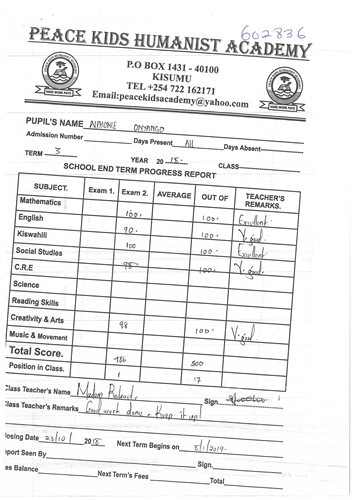 602836
PEACE KIDS HUMANIST ACADEMY
P.O BOX 1431 - 40100
KISUMU
TEL +254 722 162171
Email:peacekidsacademy@yahoo.com
PUPIL'S NAME ALPHONCE ONYANGO
Admission Number Days Present All Days Absent
TERM 3 YEAR 2018 CLASS
SCHOOL END TERM PROGRESS REPORT
SUBJECT. Exam 1. Exam 2. AVERAGE OUT OF TEACHER'S REMARKS.
Mathematics 100 100 Excellent
English 90 100 V. good
Kiswahili 100 100 Excellent
Social Studies 98 100 V. good
C.R.E
Science
Reading Skills
Creativity & Arts 98 100 V. good
Music & Movement
Total Score. 486 500
Position in Class. 1 17
Class Teacher's Name Madam Sign.
Class Teacher's Remarks Good work done. Keep it up!
losing Date 23/10/2018 Next Term Begins on 8/1/2019
eport Seen By Sign.
es Balance Next Term's Fees Total